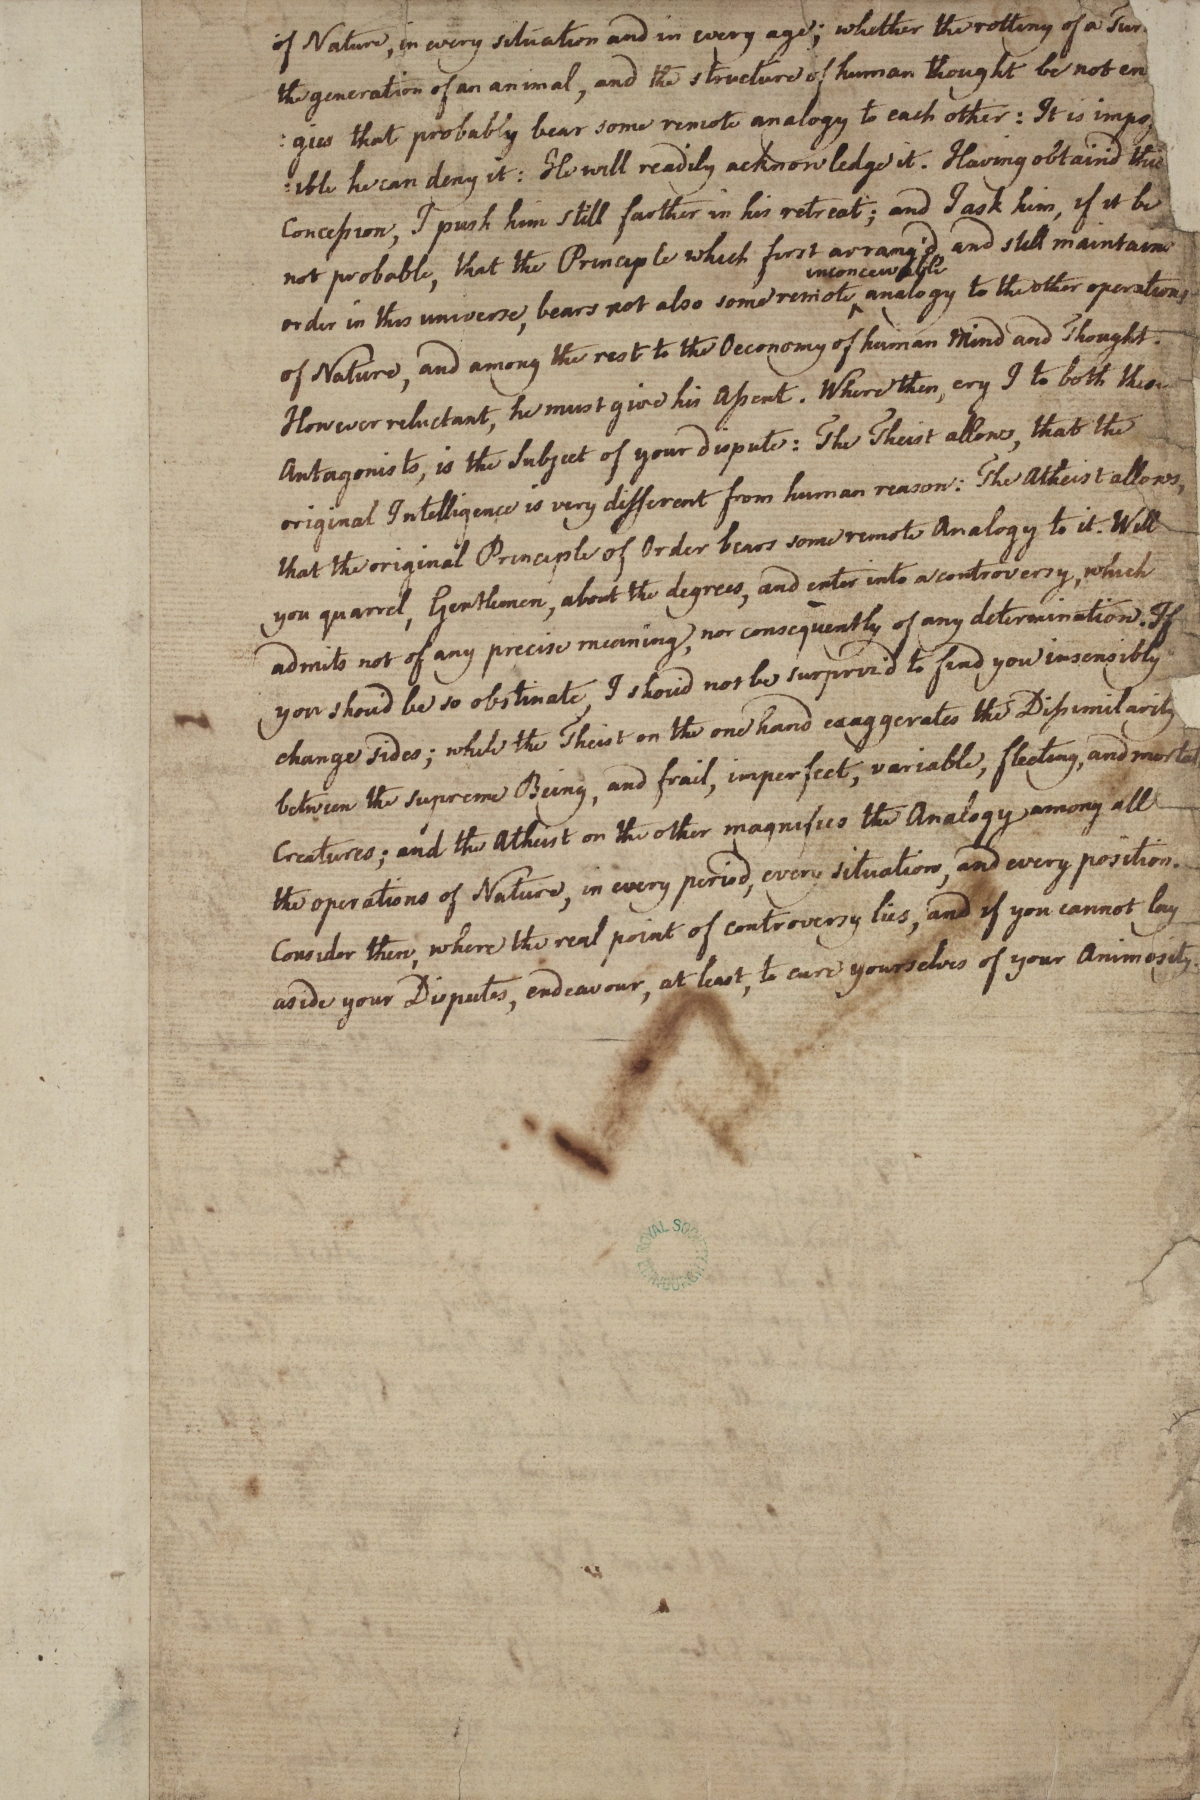 of Nature, in every situation and in every age; whether the rotting of a Tur
the generation of an animal, and the structure of human thought be not en
:gies that probably bear some remote analogy to each other: It is impos
:ible he can deny it: He will readily acknowledge it. Having obtain'd this
Concession, I push him still farther in his retreat; and I ask him, if it be
not probable, that the Principle which first arrang'd and still maintains
inconceivable
order in this universe, bears not also some remote ^ analogy to the other operations
of Nature, and among the rest to the Oeconomy of human Mind and Thought.
However reluctant, he must give his Assent. Where then, cry I to both these
Antagonists, is the Subject of your dispute: The Theist allows, that the
original Intelligence is very different from human reason: The Atheist allows,
that the original Principle of Order bears some remote Analogy to it. Will
you quarrel, Gentlemen, about the degrees, and enter into a controversy, which
admits not of any precise meaning, nor consequently of any determination. If
you shou'd be so obstinate, I shou'd not be surpriz'd to find you insensibly
change sides; while the Theist on the one hand exaggerates the Dissimilarity
between the supreme Being, and frail, imperfect, variable, fleeting, and mortal
Creatures; and the Atheist on the other magnifies the Analogy among all
the operations of Nature, in every period, every situation, and every position.
Consider then, where the real point of controversy lies, and if you cannot lay
aside your Disputes, endeavour, at least, to cure yourselves of your Animosity.
ROYAL SOCIETY
EDINBURGH